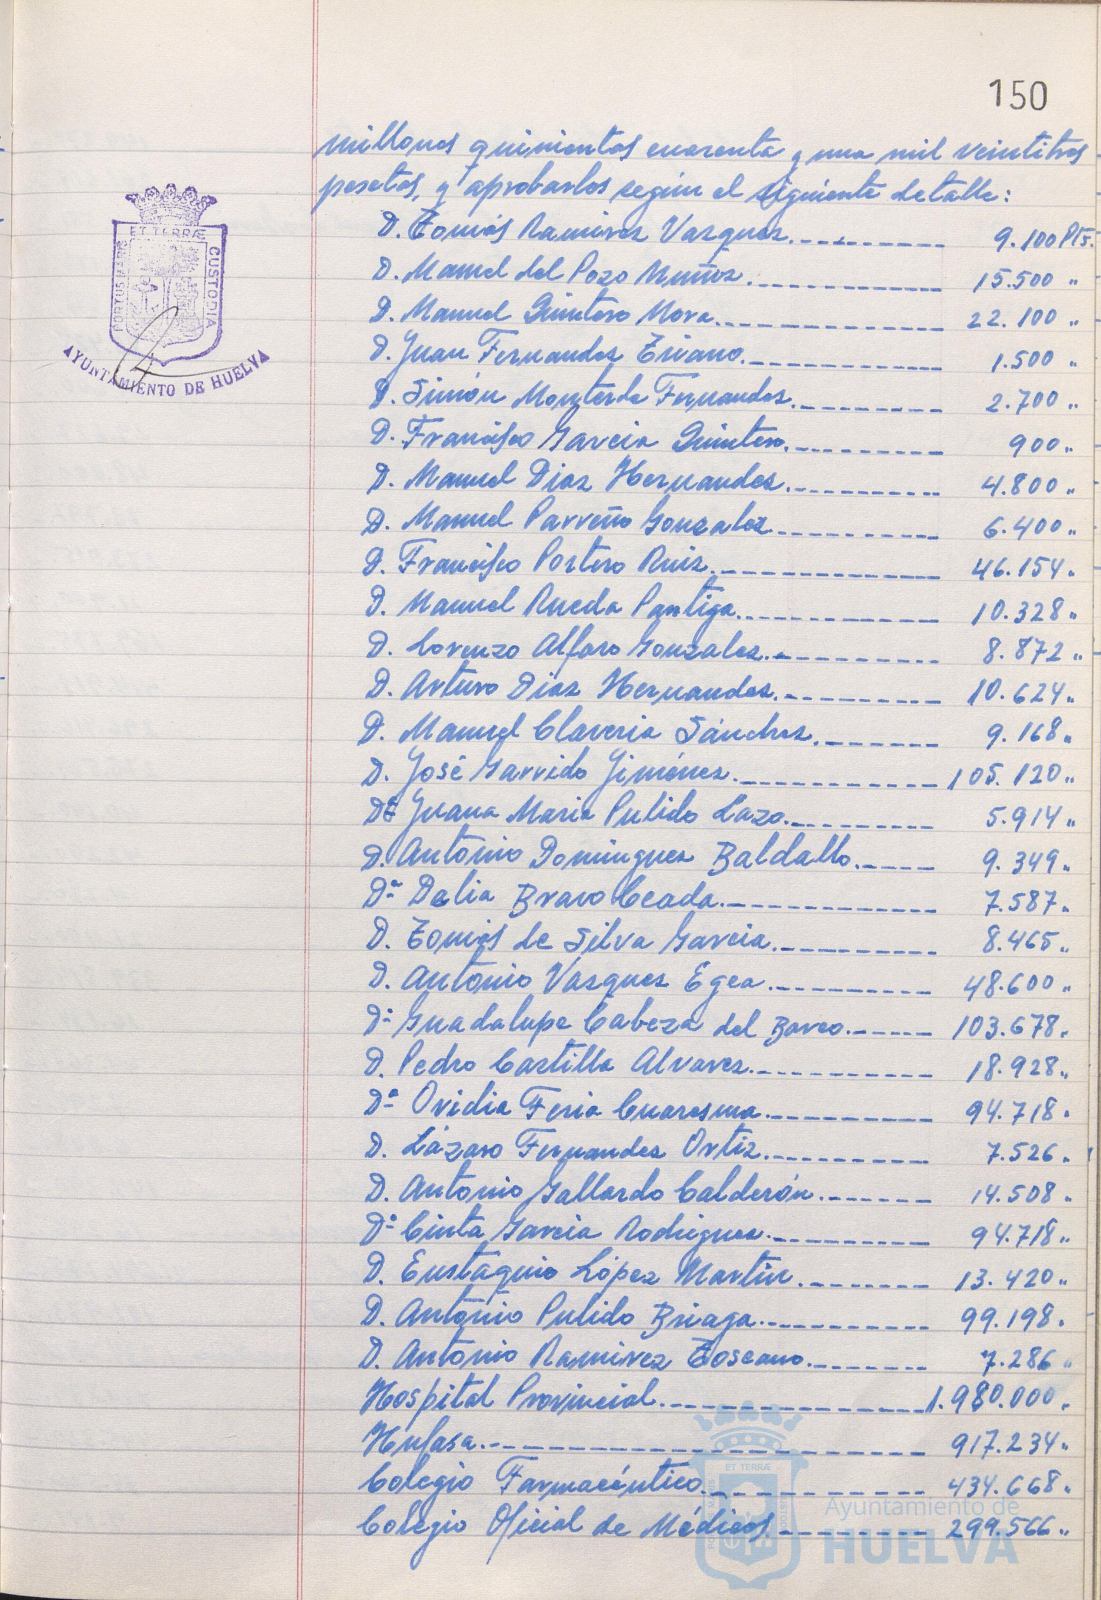 150
millones quinientos cuarenta y una mil veintitres
pesetas, y aprobarlos según el siguiente detalle:
D. Tomás Ramirez Vazquez 9.100 Pts.
D. Manuel del Pozo Muñoz 15.500 "
D. Manuel Quintero Mora 22.100 "
D. Juan Fernandez Triano 1.500 "
D. Simón Monterde Fernandez 2.700 "
D. Francisco Garcia Quintero 900 "
D. Manuel Diaz Hernandez 4.800 "
D. Manuel Parreño Gonzalez 6.400 "
D. Francisco Portero Ruiz 46.154 "
D. Manuel Rueda Pantiga 10.328 "
D. Lorenzo Alfaro Gonzalez 8.872 "
D. Arturo Diaz Hernandez 10.624 "
D. Manuel Claveria Sánchez 9.168 "
D. José Garrido Jiménez 105.120 "
Dª Juana Maria Pulido Lazo 5.914 "
D. Antonio Dominguez Baldallo 9.349 "
Dª Dalia Bravo Ceada 7.587 "
D. Tomás de Silva Garcia 8.465 "
D. Antonio Vazquez Egea 48.600 "
Dª Guadalupe Cabeza del Barco 103.678 "
D. Pedro Castilla Alvarez 18.928 "
Dª Ovidia Feria Cuaresma 94.718 "
D. Lázaro Fernandez Ortiz 7.526 "
D. Antonio Gallardo Calderón 14.508 "
Dª Cinta Garcia Rodriguez 94.718 "
D. Eustaquio López Martin 13.420 "
D. Antonio Pulido Briaga 99.198 "
D. Antonio Ramirez Toscano 7.286 "
Hospital Provincial 1.980.000 "
Hufasa 917.234 "
Colegio Farmacéutico 434.668 "
Colegio Oficial de Médicos 299.566 "
PORTUS MARIS
ET TERRÆ
CUSTODIA
AYUNTAMIENTO DE HUELVA
ET TERRÆ
Ayuntamiento de
HUELVA